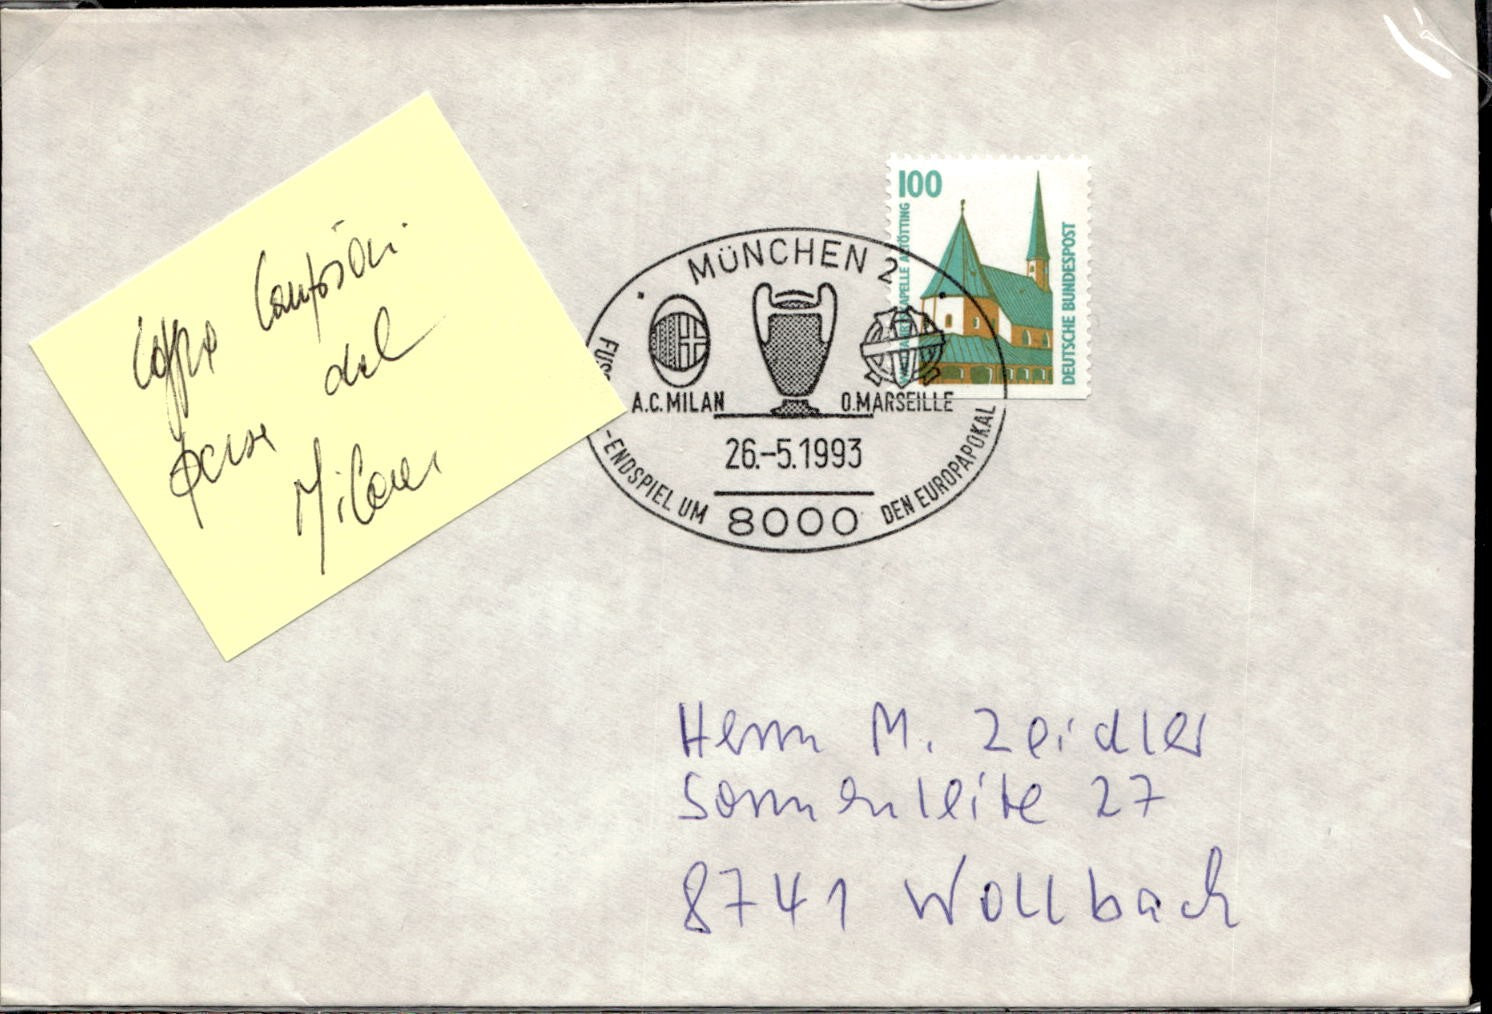 Coppa Campioni
persa dal
Milan
100
WALLFAHRTSKAPELLE ALTÖTTING
DEUTSCHE BUNDESPOST
MÜNCHEN 2
A.C. MILAN
O.MARSEILLE
26.-5.1993
-ENDSPIEL UM DEN EUROPAPOKAL
8000
Herrn M. Zeidler
Sonnenleite 27
8741 Wollbach